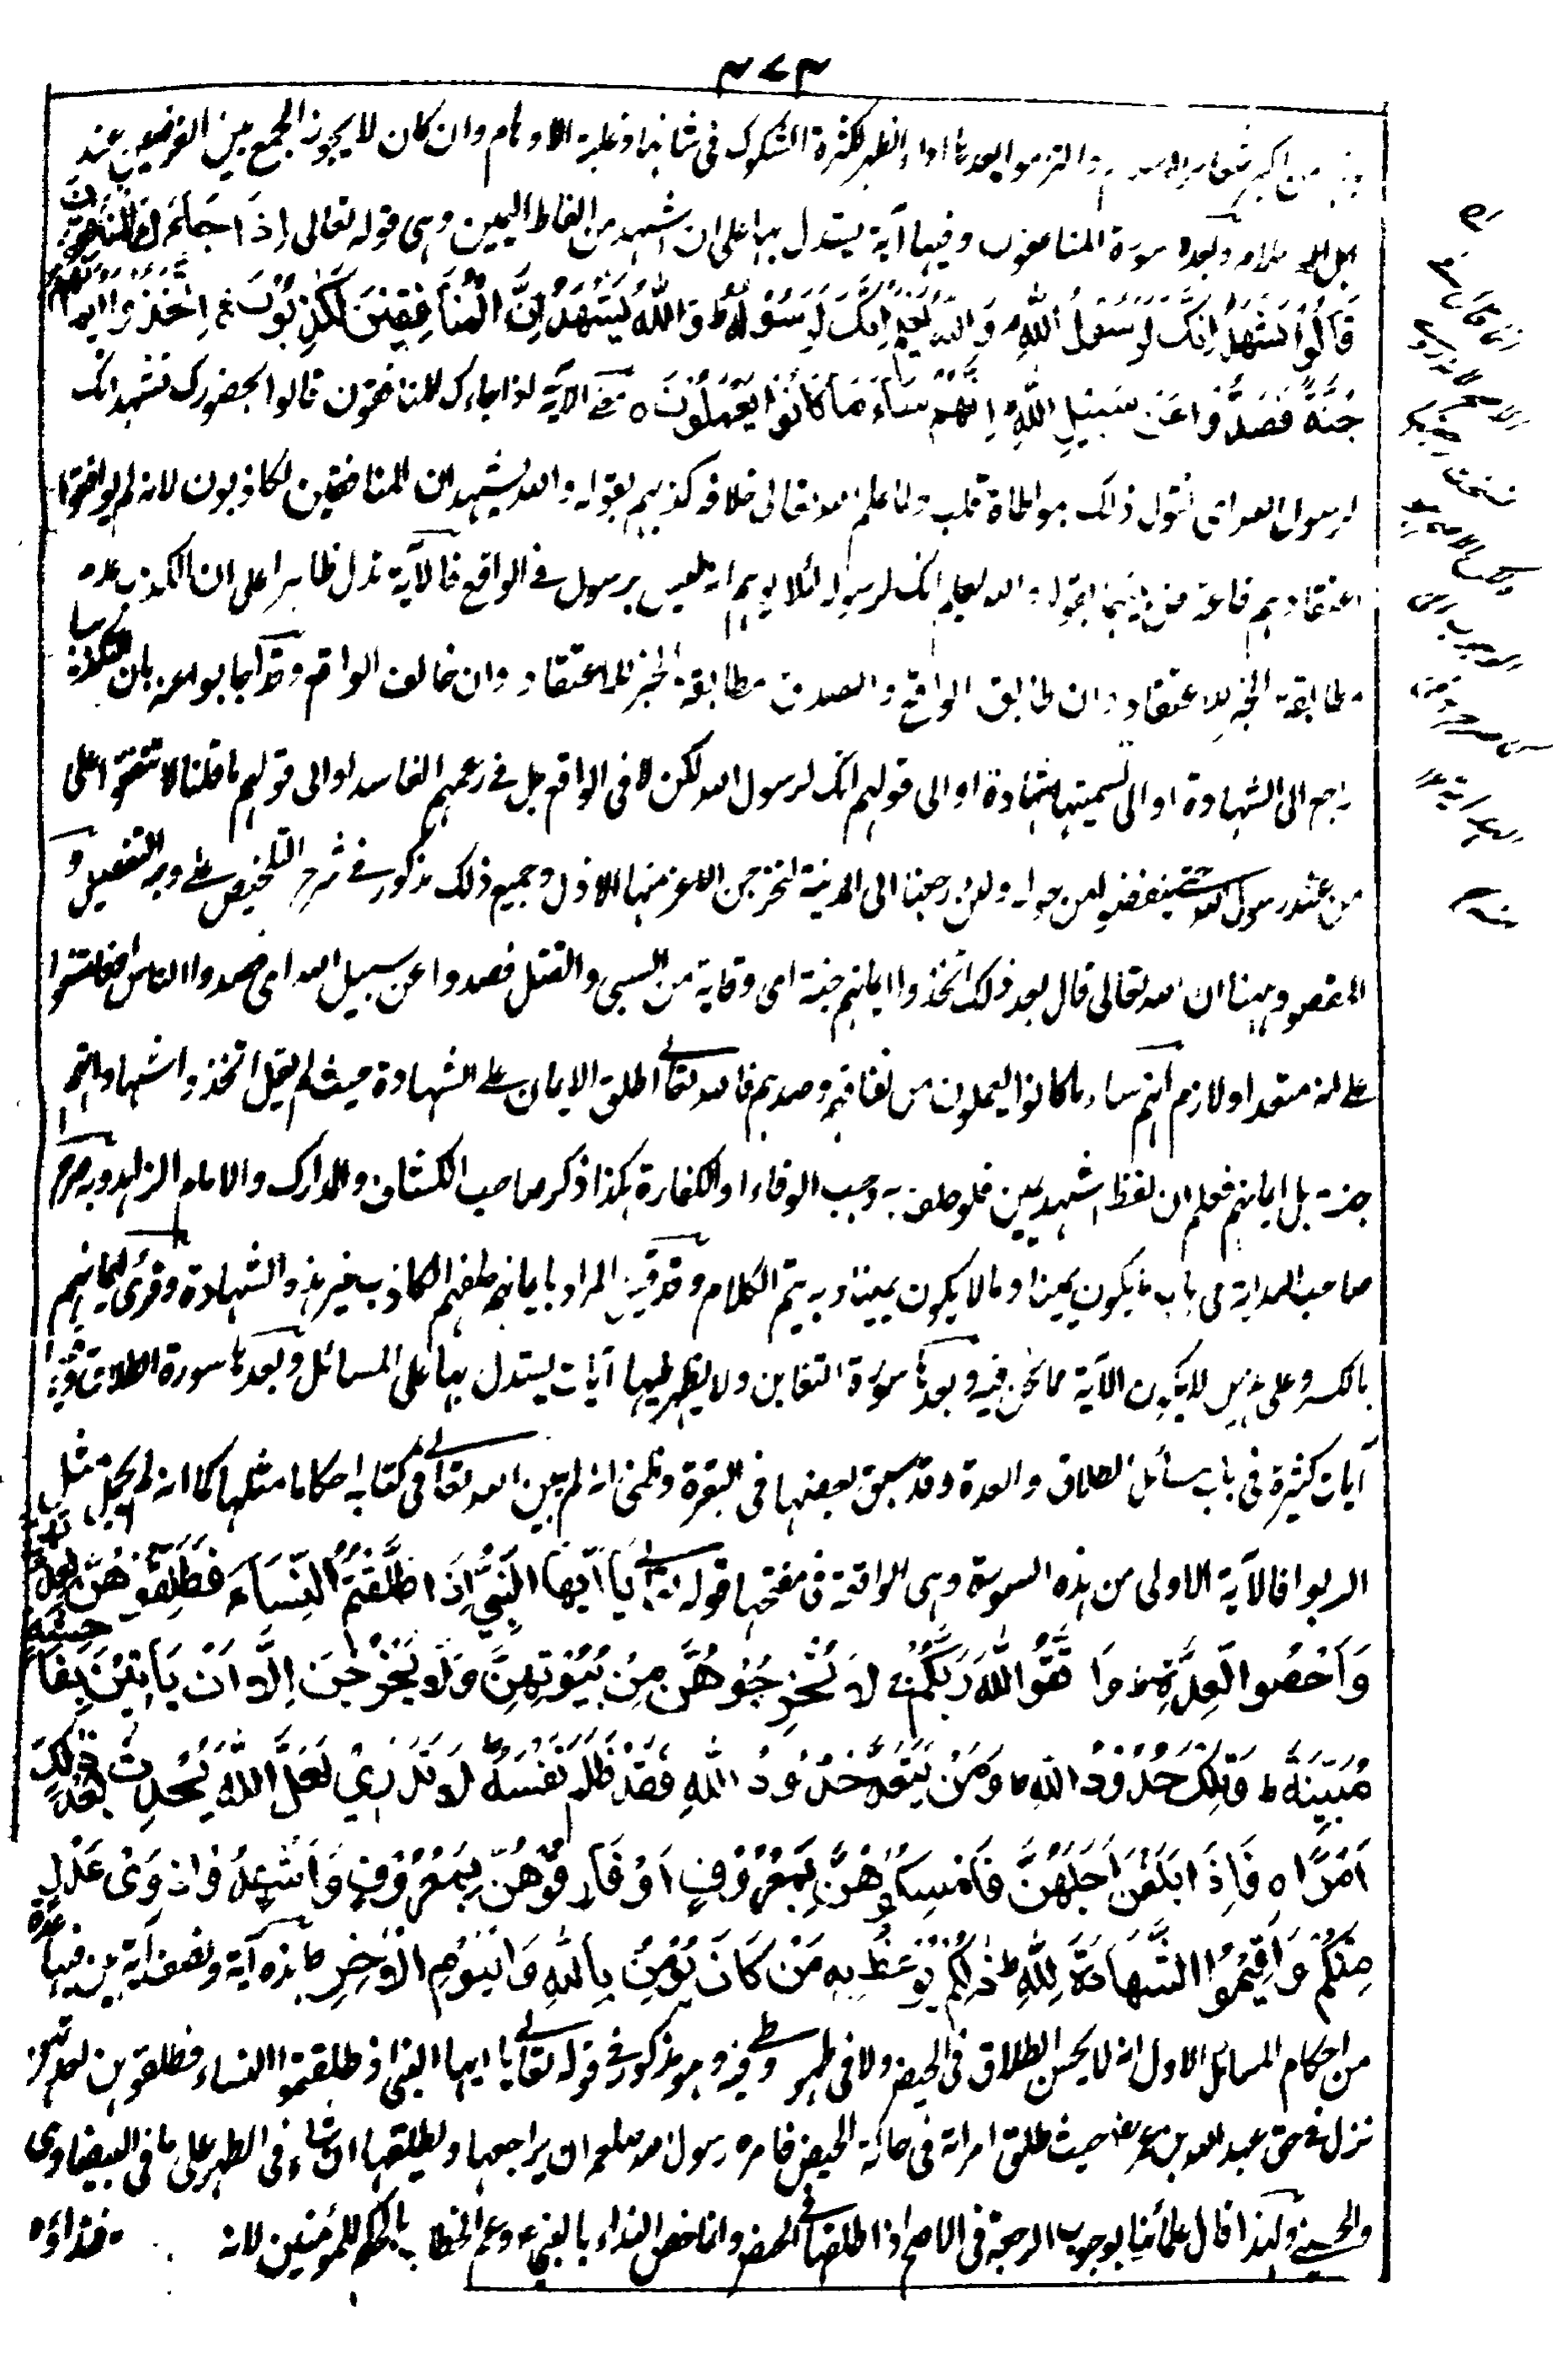 من اكبر شعار الاسلام والتزموا بعدها اداء الظهر لكثرة الشكوك فى شانها وغلبة الاوهام وان كان لا يجوز الجمع بين الفرضين عند
اهل الاسلام وبعده سورة المنافقون وفيها آية يستدل بها على ان اشهد من الفاظ اليمين وهى قوله تعالى اِذَا جَاءَكَ الْمُنَافِقُونَ
قَالُوْا نَشْهَدُ اِنَّكَ لَرَسُولُ اللّٰهِ وَاللّٰهُ يَعْلَمُ اِنَّكَ لَرَسُوْلُهٗ ط وَاللّٰهُ يَشْهَدُ اِنَّ الْمُنَافِقِيْنَ لَكٰذِبُوْنَ ج اِتَّخَذُوْا اَيْمَانَهُمْ
جُنَّةً فَصَدُّوْا عَنْ سَبِيْلِ اللّٰهِ اِنَّهُمْ سَاءَ مَا كَانُوْا يَعْمَلُوْنَ ه معنى الآية اذا جاءك المنافقون قالوا بحضورك نشهد انك
لرسول الله اى نقول ذلك بمواطاة قلب ولما علم الله تعالى خلافه كذبهم بقوله والله يشهد ان المنافقين لكاذبون لانه لم يوافقوا
اعتقادهم فاعترض بينهما بقوله والله يعلم انك لرسوله لئلا يوهم انه ليس برسول فى الواقع فالآية تدل ظاهرا على ان الكذب عدم
مطابقة الخبر للاعتقاد وان طابق الواقع والصدق مطابقة الخبر للاعتقاد وان خالف الواقع وقد اجابوا عنه بان التكذيب
راجع الى الشهادة او الى تسميتها شهادة او الى قولهم انك لرسول الله لكن لا فى الواقع بل فى زعمهم الفاسد او الى قولهم ما قلنا لا تنفقوا على
من عند رسول الله حتى ينفضوا من حوله ولئن رجعنا الى المدينة ليخرجن الاعز منها الاذل وجميع ذلك مذكور فى شرح التلخيص على وجه التفصيل و
المقصود ههنا ان الله تعالى قال بعد ذلك اتخذوا ايمانهم جنة اى وقاية من السبى والقتل فصدوا عن سبيل الله اى فصدوا الناس او اعرضوا
على انه متعد او لازم انهم ساء ما كانوا يعملون من نفاقهم وصدهم فالله تعالى اطلق الايمان على الشهادة حيث لم يقل اتخذوا شهادتهم
جنة بل ايمانهم فعلم ان لفظ اشهد يمين فلو حلف به وجب الوفاء او الكفارة هكذا ذكر صاحب الكشاف والمدارك والامام الزاهد وبه صرح
صاحب الهداية فى باب ما يكون يمينا وما لا يكون يمينا وبه يتم الكلام وقد قيل المراد بايمانهم حلفهم الكاذب غير هذه الشهادة وقرئ ايمانهم
بالكسر وعلى هذين لا يكون الآية مما نحن فيه وبعدها سورة التغابن ولا يظهر فيها آيات يستدل بها على المسائل وبعدها سورة الطلاق وفيها
آيات كثيرة فى باب مسائل الطلاق والعدة وقد سبق بعضها فى البقرة وظنى انه لم يبين الله تعالى فى كتابه احكاما مثلها كما انه لم يجمل مثل
الربوا فالآية الاولى من هذه السورة وهى الواقعة فى مفتتحها قوله تعالى يَا اَيُّهَا النَّبِيُّ اِذَا طَلَّقْتُمُ النِّسَاءَ فَطَلِّقُوْهُنَّ لِعِدَّتِهِنَّ
وَاَحْصُوا الْعِدَّةَ ج وَاتَّقُوا اللّٰهَ رَبَّكُمْ ج لَا تُخْرِجُوْهُنَّ مِنْ بُيُوْتِهِنَّ وَلَا يَخْرُجْنَ اِلَّا اَنْ يَاْتِيْنَ بِفَاحِشَةٍ
مُبَيِّنَةٍ ط وَتِلْكَ حُدُوْدُ اللّٰهِ ط وَمَنْ يَتَعَدَّ حُدُوْدَ اللّٰهِ فَقَدْ ظَلَمَ نَفْسَهٗ ط لَا تَدْرِيْ لَعَلَّ اللّٰهَ يُحْدِثُ بَعْدَ ذٰلِكَ
اَمْرًا ه فَاِذَا بَلَغْنَ اَجَلَهُنَّ فَاَمْسِكُوْهُنَّ بِمَعْرُوْفٍ اَوْ فَارِقُوْهُنَّ بِمَعْرُوْفٍ وَاَشْهِدُوْا ذَوَيْ عَدْلٍ
مِنْكُمْ وَاَقِيْمُوا الشَّهَادَةَ لِلّٰهِ ط ذٰلِكُمْ يُوْعَظُ بِهٖ مَنْ كَانَ يُؤْمِنُ بِاللّٰهِ وَالْيَوْمِ الْاٰخِرِ ط هذه آية ونصف آية بين فيها عدة
من احكام المسائل الاول انه لا يحسن الطلاق فى الحيض ولا فى طهر وطى فيه وهو مذكور فى قوله تعالى يا ايها النبى اذا طلقتم النساء فطلقوهن لعدتهن
نزل فى حق عبد الله بن عمر رض حيث طلق امراته فى حالة الحيض فامره رسول الله صلعم ان يراجعها ويطلقها ان شاء فى الطهر على ما فى البيضاوى
والحسينى ولهذا قال علمائنا بوجوب الرجعة فى الاصح اذا طلقها فى الحيض وانما خص النداء بالنبى ع وعم الخطاب بالحكم للمؤمنين لانه
فنداؤه